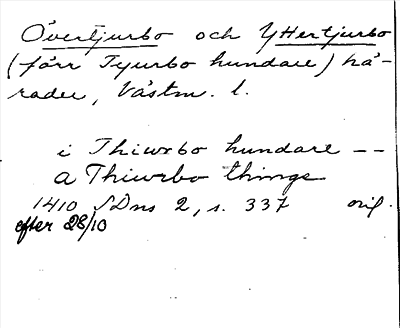 Övertjurbo och Yttertjurbo
(förr Tjurbo hundare) hä-
rader, Västm. l.
i Thiwrbo hundare --
a Thiwrbo thinge
1410 SDns 2, s. 337 orig.
efter 28/10